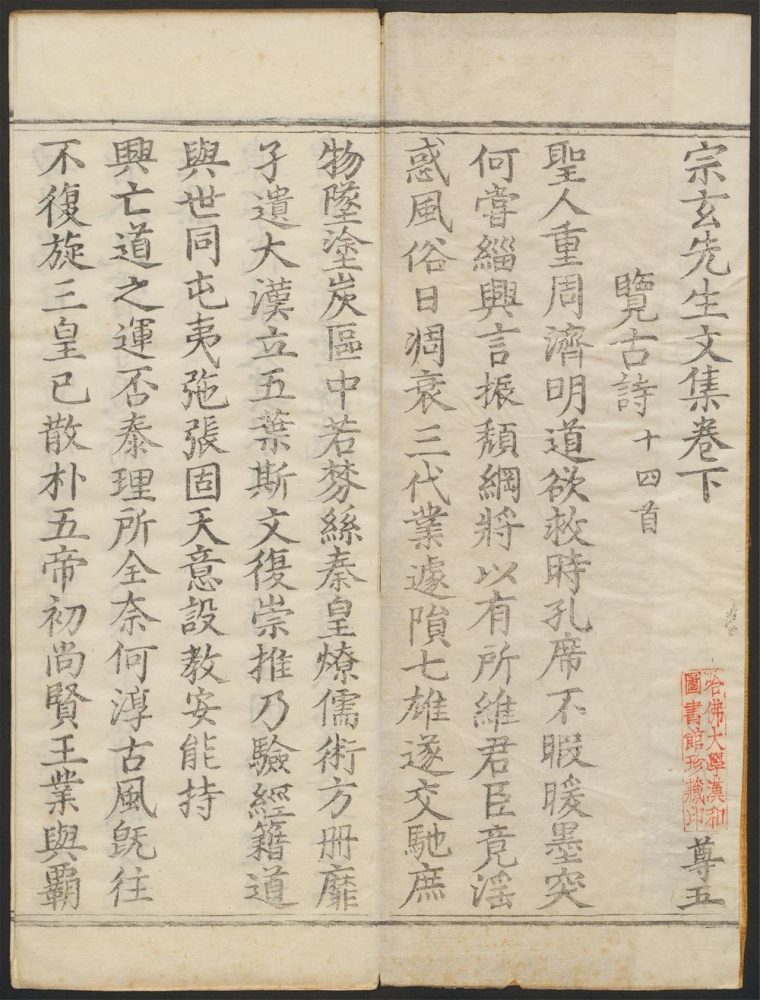 宗玄先生文集卷下
尊五
覽古詩十四首
聖人重周濟明道欲救時孔席不暇暖墨突
何嘗緇興言振頹綱將以有所維君臣竟淫
惑風俗日凋衰三代業遽隕七雄遂交馳庶
物墜塗炭區中若棼絲秦皇燎儒術方冊靡
孑遺大漢立五葉斯文復崇推乃驗經籍道
與世同屯夷弛張固天意設教安能持
興亡道之運否泰理所全奈何淳古風既往
不復旋三皇已散朴五帝初尚賢王業與霸
哈佛大學漢和
圖書館珍藏印